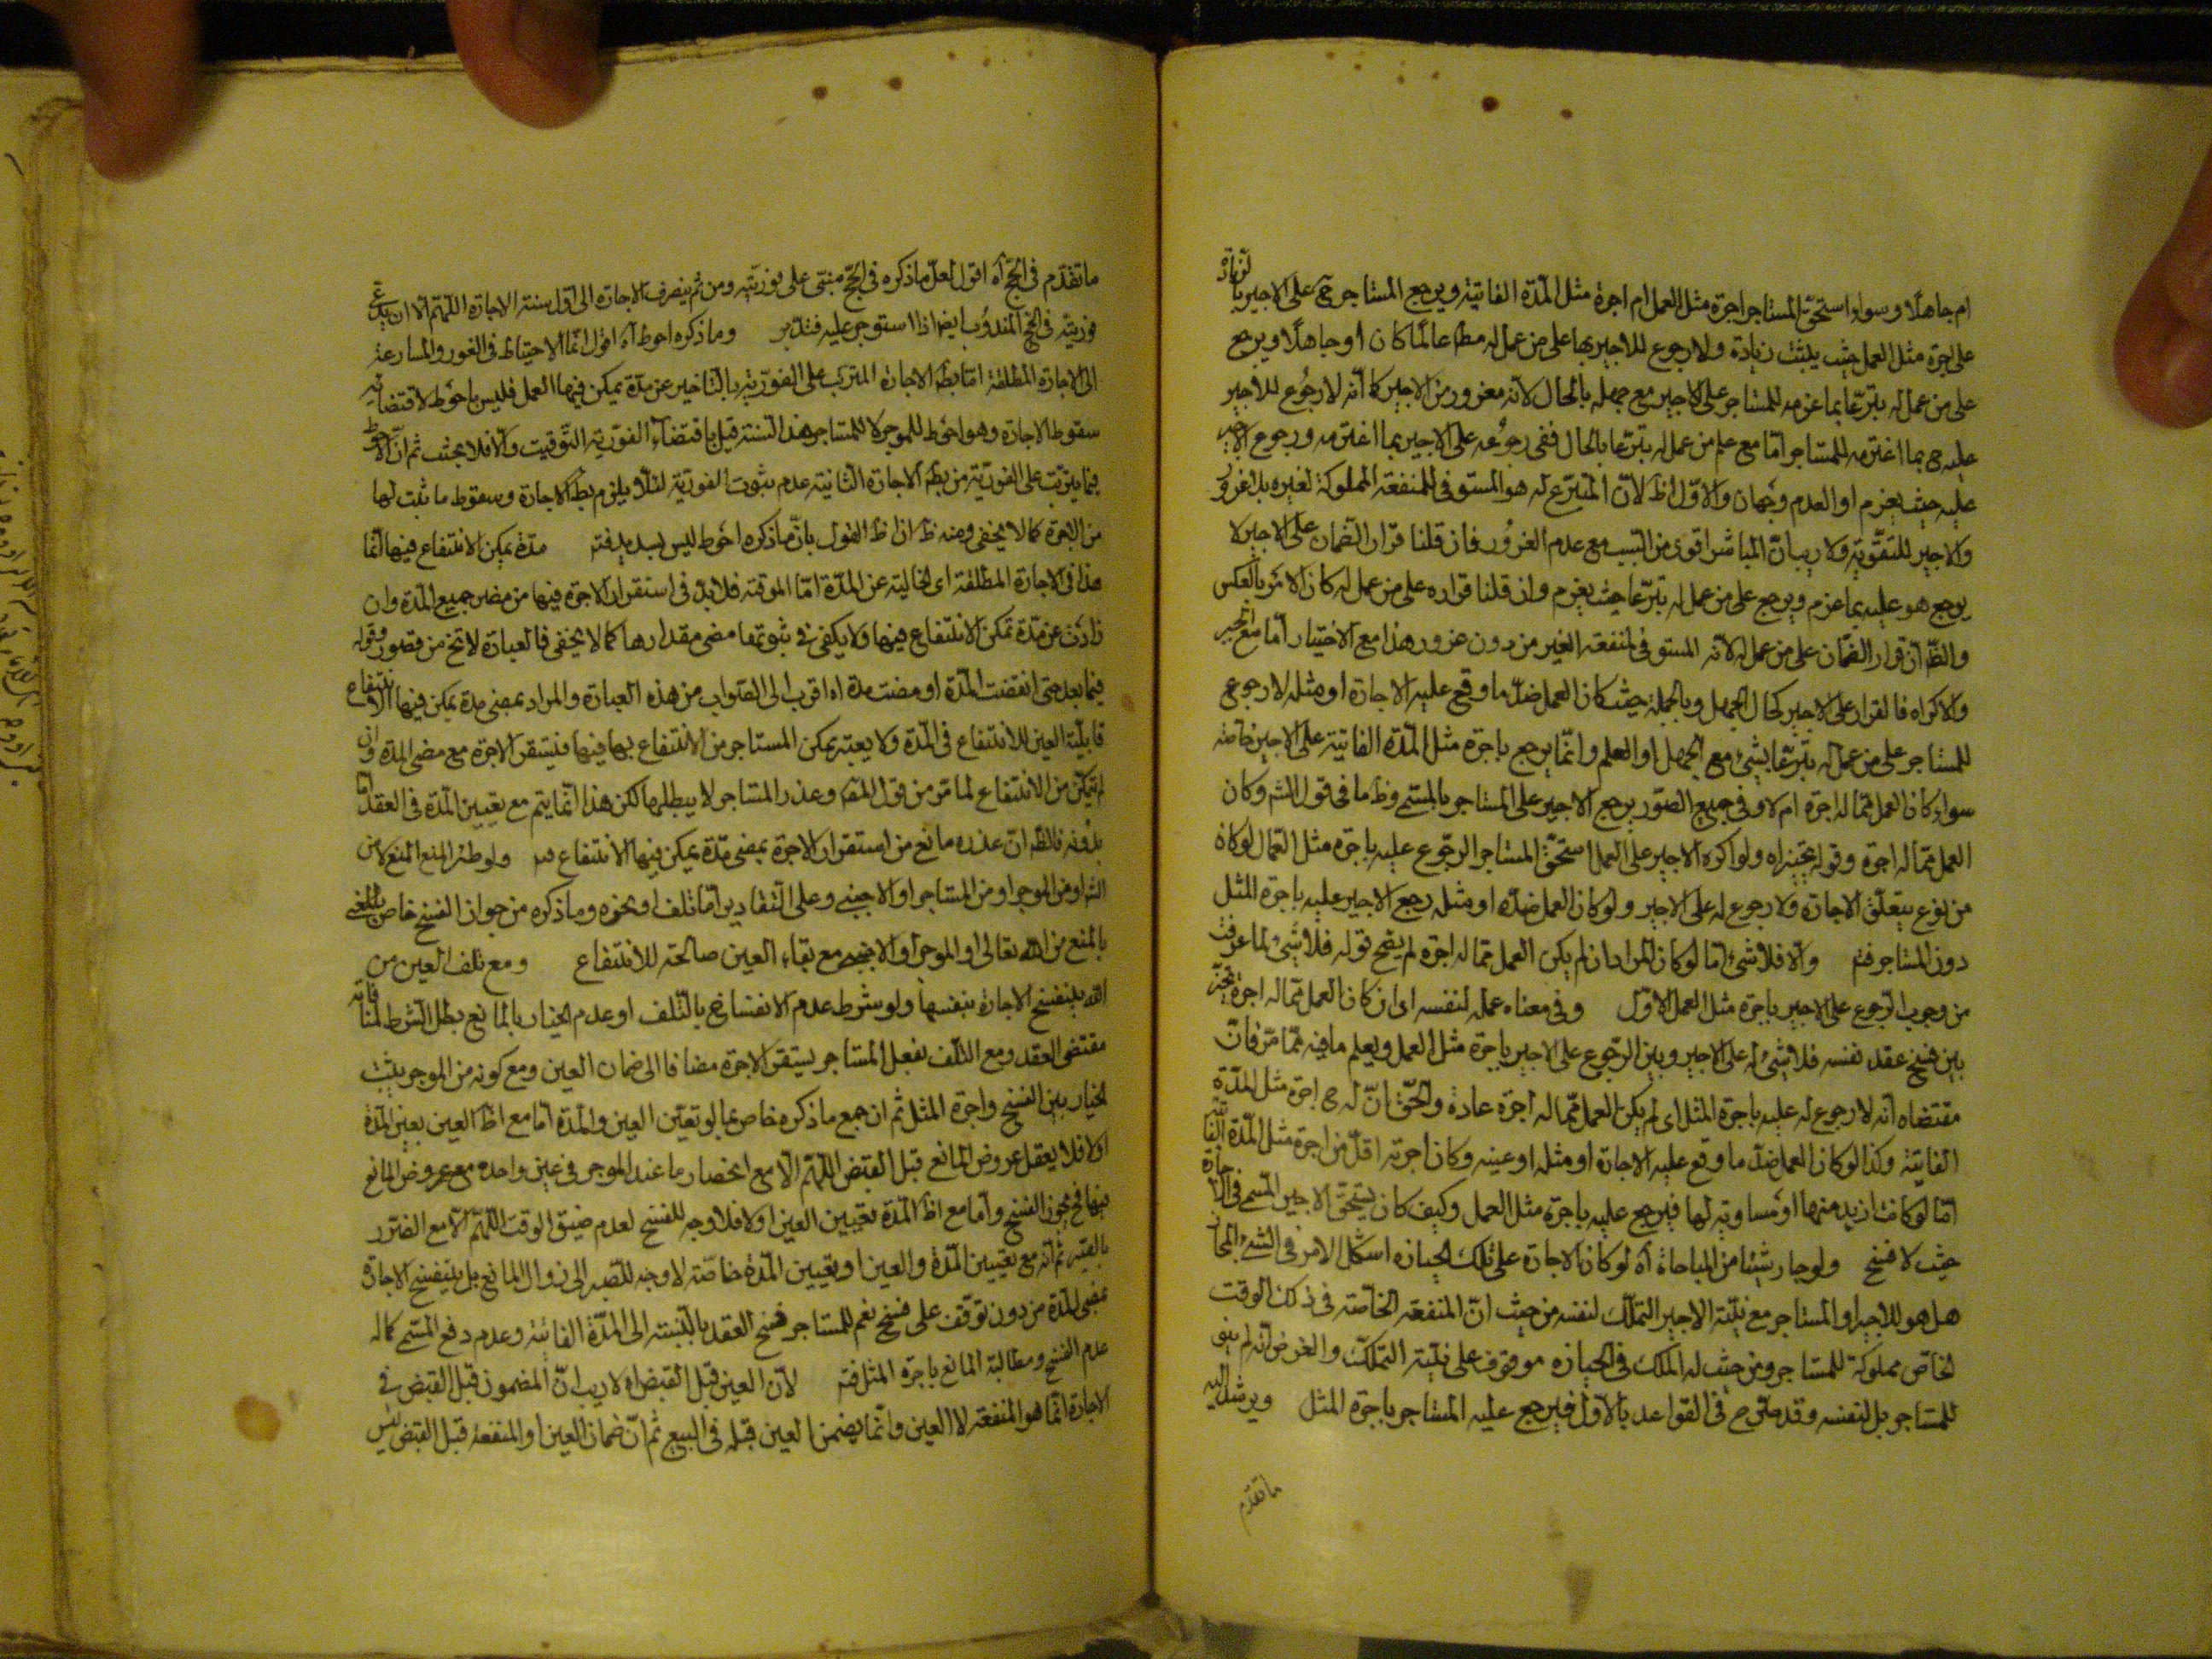 ام جاهلا وسواء استحق المستاجر اجرة مثل العمل ام اجرة مثل المدة الفايتة ويرجع المستاجر ح على الاجير بالزيادة
على اجرة مثل العمل حيث يثبت زيادة ولا رجوع للاجير بها على من عمل له مطا عالما كان او جاهلا ويرجع
على من عمل له بتبرعا بما غرمه للمستاجر على الاجير مع جهله بالحال لانه مغرور من الاجير كما انه لا رجوع للاجير
عليه ح بما اغترمه للمستاجر اما مع علم من عمل له بتبرعا بالحال ففى رجوعه على الاجير بما اغترمه ورجوع الاجير
عليه حيث يغرم او العدم وجهان والاول اظ لان المتبرع له هو المستوفى للمنفعة المملوكة لغيره بلا غرور
والاجير للتفويته ولا ريب ان المباشر اقوى من السبب مع عدم الغرور فان قلنا قرار الضمان على الاجير لا
يرجع هو عليه بما غرم ويرجع على من عمل له بتبرعا حيث يغرم وان قلنا قراره على من عمل له كان الامر بالعكس
والظ ان قرار الضمان على من عمل له لانه المستوفى لمنفعة الغير من دون غرور هذا مع الاختيار اما مع الجبر
والاكراه فالقرار على الاجير كحال الجهل وبالجملة حيث كان العمل ضد ما وقع عليه الاجارة او مثله لا رجوع
للمستاجر على من عمل له بتبرعا بشئ مع الجهل او العلم وانما يرجع باجرة مثل المدة الفايتة على الاجير خاصه
سواء كان العمل مما له اجرة ام لا وفى جميع الصور يرجع الاجير على المستاجر بالمسمى وظ ما فى قول الش وكان
العمل مما له اجرة وقوله يتخير اه ولو اكره الاجير على العمل استحق المستاجر الرجوع عليه باجرة مثل العمل لو كان
من نوع يتعلق الاجارة ولا رجوع له على الاجير ولو كان العمل ضده او مثله رجع الاجير عليه باجرة المثل
دون المستاجر فتم والا فلا شئ اما لو كان المراد ان لم يكن العمل مما له اجرة لم يصح قوله فلا شئ لما عرفت
من وجوب الرجوع على الاجير باجرة مثل العمل الاول وفى معناه عمله لنفسه اى ان كان العمل مما له اجرة تخير
بين فسخ عقد نفسه فلا شئ له على الاجير وبين الرجوع على الاجير باجرة مثل العمل ويعلم ما فيه مما مر فان
مقتضاه انه لا رجوع له عليه باجرة المثل اى لم يكن العمل مما له اجرة عادة والحق ان له ح اجرة مثل المدة
الفايتة وكذا لو كان العمل ضد ما وقع عليه الاجارة او مثله او عينه وكان اجرته اقل من اجرة مثل المدة الفايتة
اما لو كانت ازيد منها او مساوية لها فيرجع عليه باجرة مثل العمل وكيف كان يستحق الاجير المسمى فى الاجارة
حيث لا فسخ ولو حاز شيئا من المباحات اه لو كان الاجارة على تلك الحيازه اشكل الامر فى الشئ المحاز
هل هو للاجير او المستاجر مع نية الاجير التملك لنفسه من حيث ان المنفعة الخاصة فى ذلك الوقت
الخاص مملوكة للمستاجر ومن حيث له الملك فى الحيازه موقوف على نية التملك والغرض انه لم ينو
للمستاجر بل لنفسه وقد صرح فى القواعد بالاول فيرجع عليه المستاجر باجرة المثل ويرشد اليه
ما تقدم
ما تقدم فى الحج اه اقول لعل ما ذكره فى الحج مبنى على فوريته ومن ثم ينصرف الاجارة الى اول سنة الاجارة اللهم الا ان يدعى
فوريته فى الحج المندوب ايضا اذا استوجر عليه فتدبر وما ذكره احوط اه اقول انما الاحتياط فى الفور والمسارعة
الى الاجارة المطلقة اما بط الاجارة المترتب على الفورية بالتاخير عن مدة يمكن فيها العمل فليس باحوط لاقتضائه
سقوط الاجارة وهو احوط للموجر لا للمستاجر هذا قيل باقتضاء الفورية التوقيت والا فلا بحث ثم ان الاحوط
فيما يترتب على الفورية من بط الاجارة الثانية عدم ثبوت الفورية لئلا يلزم بط الاجارة وسقوط ما ثبت لها
من الاجرة كما لا يخفى ومنه ظ ان اظ القول بان ما ذكره احوط ليس بسديد فتم مدة يمكن الانتفاع فيها انما
هذا فى الاجارة المطلقة اى الخالية عن المدة اما الموقتة فلا بد فى استقرار الاجرة فيها من مضى جميع المدة وان
زادت عن مدة تمكن الانتفاع فيها ولا يكفى فى ثبوتها مضى مقدارها كما لا يخفى فالعبارة لا تخ من قصور وقوله
فيما بعد متى انقضت المدة او مضت مدة اه اقرب الى الصواب من هذه العبارة والمراد بمضى مدة يمكن فيها الانتفاع
قابلية العين للانتفاع فى المدة ولا يعتبر تمكن المستاجر من الانتفاع بها فيها فيستقر الاجرة مع مضى المدة وان
لم يتمكن من الانتفاع لما مر من قول المص وعذر المستاجر لا يبطلها لكن هذا انما يتم مع تعيين المدة فى العقد اما
بدونه فالظ ان عذره مانع من استقرار الاجرة بمضى مدة يمكن فيها الانتفاع فيه ولو طرء المنع المنع كان من
الله او من الموجر او من المستاجر او الاجنبى وعلى التقادير اما تلف او نحوه وما ذكره من جواز الفسخ خاص
بالمنع من الله تعالى او الموجر او الاجنبى مع بقاء العين صالحة للانتفاع ومع تلف العين من
الله ينفسخ الاجارة بنفسها ولو شرط عدم الانفساخ بالتلف او عدم الخيار بالمانع بطل الشرط لمنافاته
مقتضى العقد ومع التلف بفعل المستاجر يستقر الاجرة مضافا الى ضمان العين ومع كونه من الموجر يثبت
الخيار بين الفسخ واجرة المثل ثم ان جمع ما ذكره خاص بما لو تعين العين والمدة اما مع اظ العين بعين المدة
او لا فلا يعقل عروض المانع قبل القبض اللهم الا مع انحصار ما عند الموجر فى عين واحده مع عروض المانع
فيها فح يجوز الفسخ واما مع اظ المدة بتعيين العين او لا فلا وجه للفسخ لعدم ضيق الوقت اللهم الا مع الضرر
ثم انه مع تعيين المدة والعين او تعيين المدة خاصة لا وجه للصبر الى زوال المانع بل ينفسخ الاجارة
بمضى المدة من دون توقف على فسخ نعم للمستاجر فسخ العقد بالنسبة الى المدة الفائتة وعدم دفع المسمى كما له
عدم الفسخ ومطالبة المانع باجرة المثل فتم لان العين قبل القبض اه لا ريب ان المضمون قبل القبض فى
الاجارة انما هو المنفعة لا العين وانما يضمن العين قبله فى البيع ثم ان ضمان العين او المنفعة قبل القبض ليس